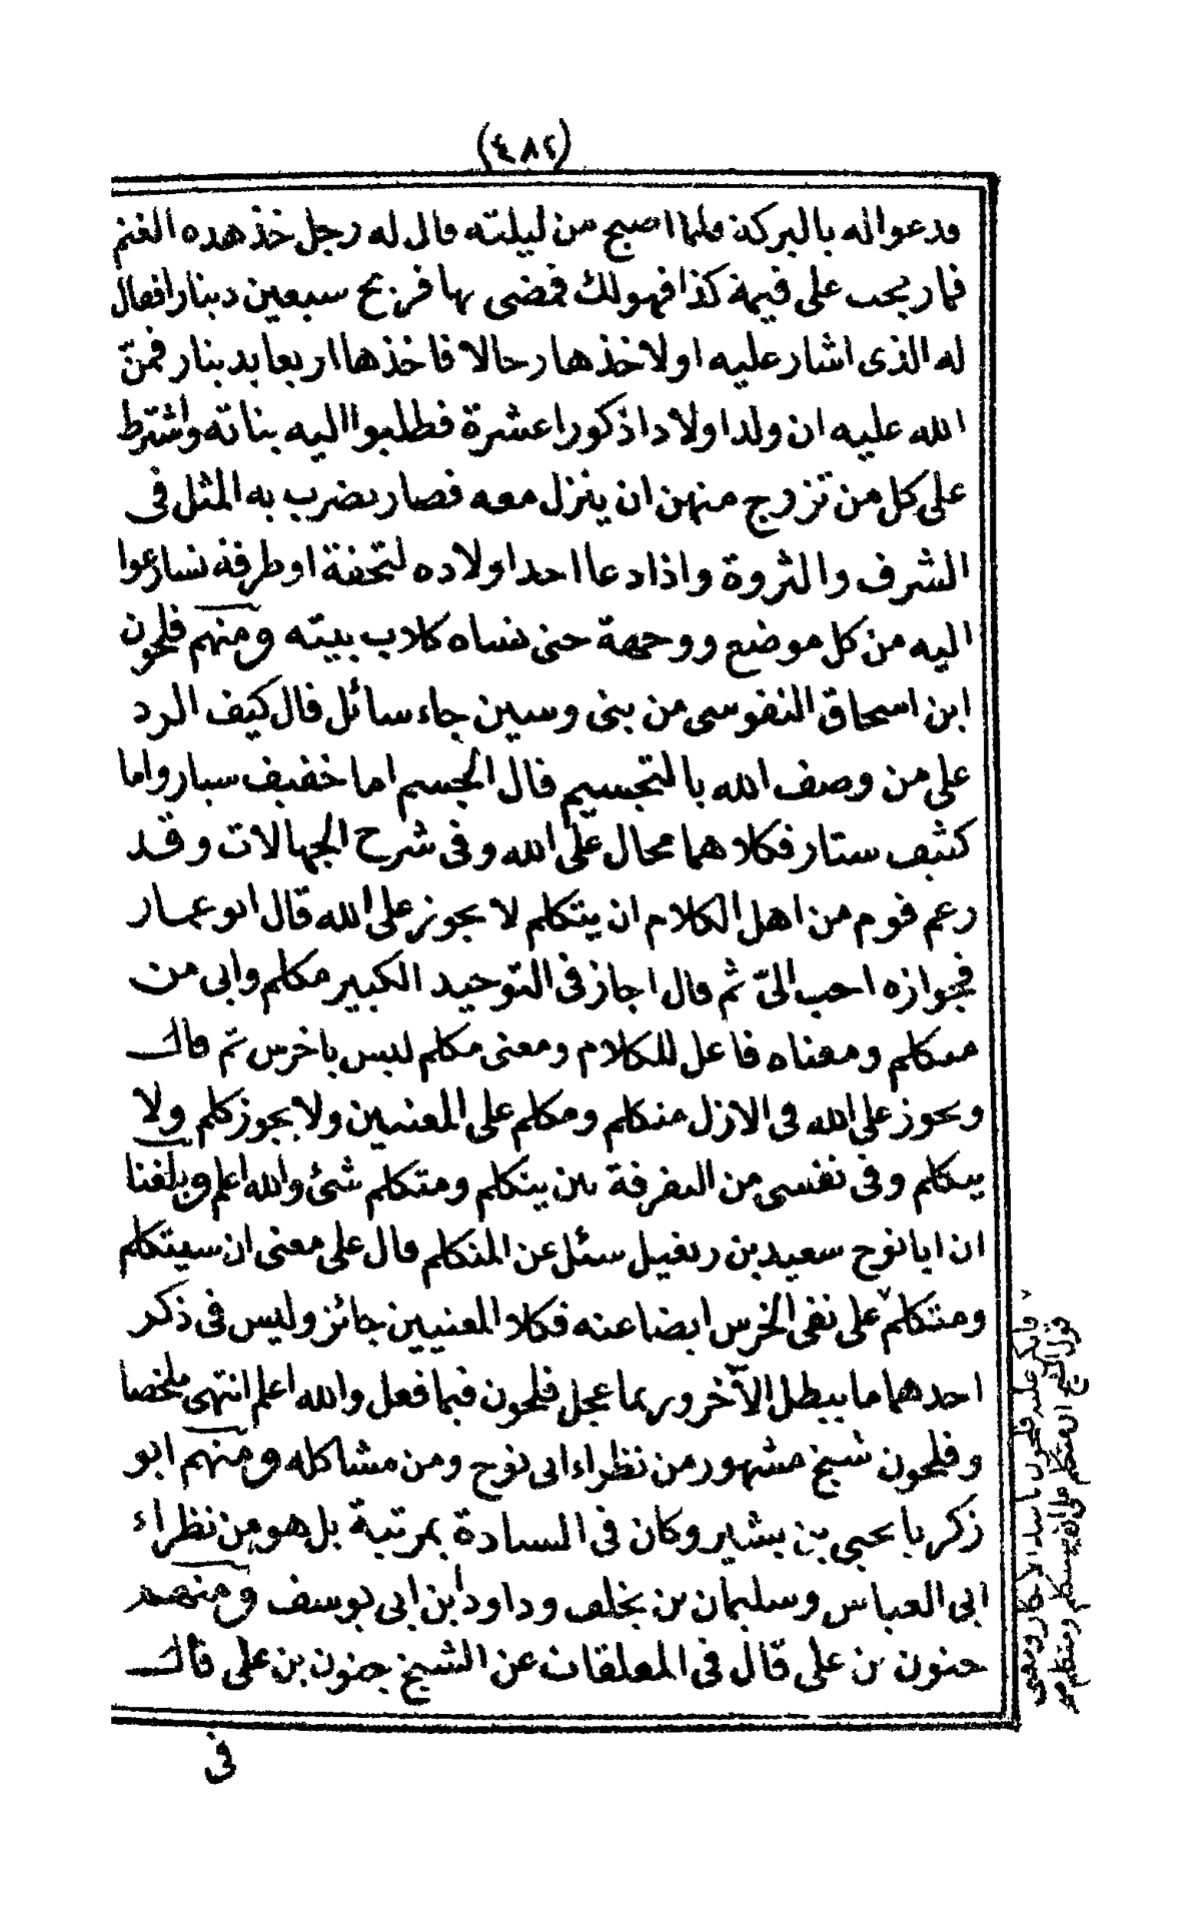 (٤٨٢)
ودعوا له بالبركة فلما اصبح من ليلته قال له رجل خذ هذه الغنم
فما ربحت على قيمة كذا فهو لك فمضى بها فربح سبعين دينارا فقال
له الذى اشار عليه اولا خذها رحالا فاخذها اربعا بدينار فمنّ
الله عليه ان ولد اولادا ذكورا عشرة فطلبوا اليه بناته واشترط
على كل من تزوج منهن ان ينزل معه فصار يضرب به المثل فى
الشرف والثروة واذا دعا احد اولاده لتحفة او طرفة تسارعوا
اليه من كل موضع ووجهة حتى تنساه كلاب بيته ومنهم فلحون
ابن اسحاق النفوسى من بنى وسين جاء سائل قال كيف الرد
على من وصف الله بالتجسيم قال الجسم اما خفيف سيار واما
كثيف ستار فكلاهما محال على الله وفى شرح الجهالات وقد
زعم قوم من اهل الكلام ان يتكلم لا يجوز على الله قال ابو عمار
فجوازه احب الىّ ثم قال اجاز فى التوحيد الكبير مكلم وابى من
متكلم ومعناه فاعل للكلام ومعنى مكلم ليس باخرس ثم قال
ويجوز على الله فى الازل متكلم ومكلم على المعنيين ولا يجوز كلم ولا
يتكلم وفى نفسى من التفرقة بين يتكلم ومتكلم شئ والله اعلم وبلغنا
ان ابا نوح سعيد بن زنغيل سئل عن المتكلم قال على معنى ان سيتكلم
ومتكلم على نفى الخرس ايضا عنه فكلا المعنيين جائز وليس فى ذكر
احدهما ما يبطل الآخر وربما عجل فلحون فيما فعل والله اعلم انتهى ملخصا
وفلحون شيخ مشهور من نظراء ابى نوح ومن مشاكله ومنهم ابو
زكريا يحيى بن بشير وكان فى السادة بمرتبة بل هو من نظراء
ابى العباس وسليمان بن يخلف وداود ابن ابى يوسف ومنهم
جنون بن على قال فى المعلقات عن الشيخ جنون بن على قال
فى
فانكر عليه فلحون اشد الانكار ومعنى
قول الشيخ ان متكلم على انه سيتكلم ومتكلم